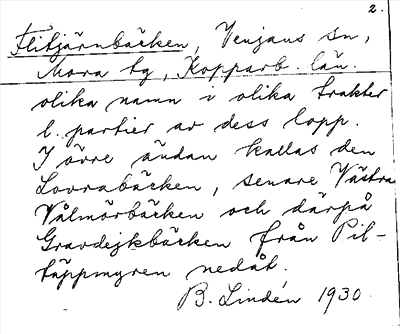 2.
Flitjärnbäcken, Venjans sn,
Mora tg, Kopparb. län.
olika namn i olika trakter
l. partier av dess lopp.
I övre ändan kallas den
Lovrabäcken, senare Västra
Vålmörbäcken och därpå
Gravdejkbäcken från Pil-
täppmyren nedåt.
B. Lindén 1930.